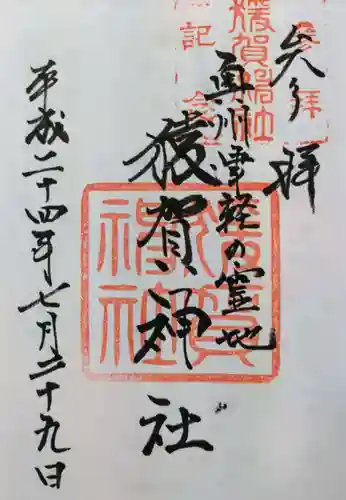 参拝
奥州津軽の霊地
猿賀神社
平成二十四年七月二十九日
猿賀神社
参拝
記念
猿賀神社